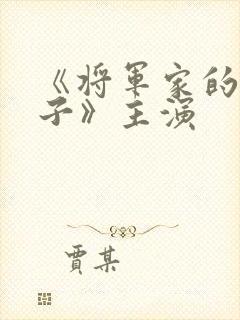 《将軍家的
子》主演
賈某